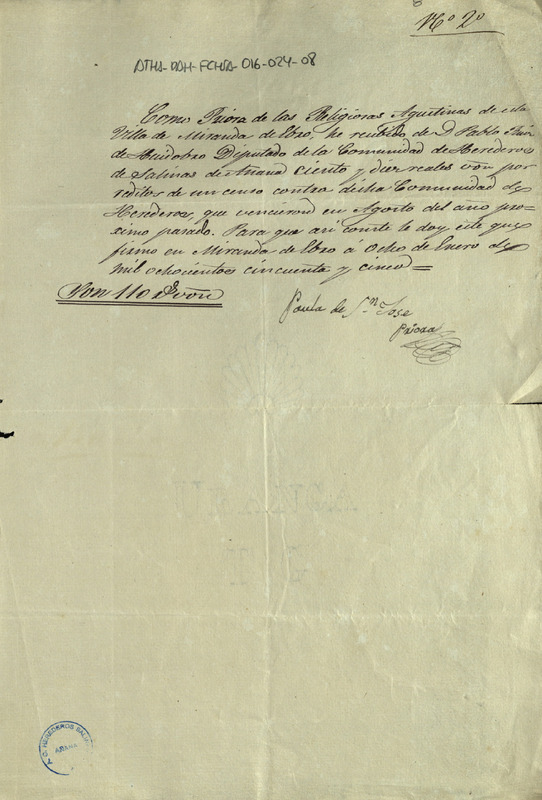 Nº 2º
ATHA-DAH-FCHSA-016-024-08
Como Priora de las Religiosas Agustinas de esta
Villa de Miranda de Ebro, he recibido de D. Pablo
de Huidobro Diputado de la Comunidad de Herederos
de Salinas de Añana ciento y diez reales von por
reditos de un censo contra dicha Comunidad de
Herederos, que vencieron en Agosto del año pro=
ximo pasado. Para que asi conste le doy este que
firmo en Miranda de Ebro á Ocho de Enero de
mil ochocientos cincuenta y cinco =
Son 110 rs von
Paula de Sn. Jose
Priora
HEREDEROS
AÑANA